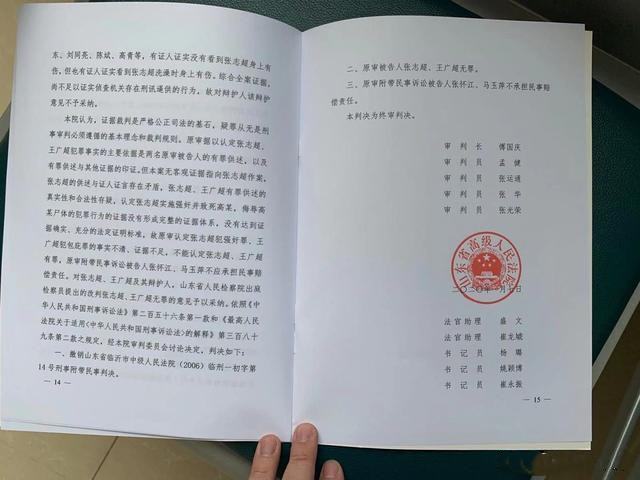 东、刘同亮、陈斌、高青等，有证人证实没有看到张志超身上有
伤。但也有证人证实看到张志超洗澡时身上有伤。综合全案证据，
尚不足以证实侦查机关存在刑讯逼供的行为，故对辩护人该辩护
意见不予采纳。
本院认为，证据裁判是严格公正司法的基石，疑罪从无是刑
事审判必须遵循的基本理念和裁判规则。原审据以认定张志超、
王广超犯罪事实的主要依据是两名原审被告人的有罪供述，以及
有罪供述与其他证据的印证。但本案无客观证据指向张志超作案，
张志超的供述与证人证言存在矛盾，张志超、王广超有罪供述的
真实性和合法性存疑，认定张志超实施强奸并致死高某，侮辱高
某尸体的犯罪行为的证据没有形成完整的证据体系，没有达到证
据确实、充分的法定证明标准，故原审认定张志超犯强奸罪、王
广超犯包庇罪的事实不清、证据不足，不能认定张志超、王广超
有罪，原审附带民事诉讼被告人张怀江、马玉萍不应承担民事赔
偿责任。对张志超、王广超及其辩护人，山东省人民检察院出庭
检察员提出的改判张志超、王广超无罪的意见予以采纳。依照《中
华人民共和国刑事诉讼法》第二百五十六条第一款和《最高人民
法院关于适用<中华人民共和国刑事诉讼法>的解释》第三百八十
九条第二款之规定，经本院审判委员会讨论决定，判决如下：
一、撤销山东省临沂市中级人民法院（2006）临刑一初字第
14号刑事附带民事判决。
— 14 —
二、原审被告人张志超、王广超无罪。
三、原审附带民事诉讼被告人张怀江、马玉萍不承担民事赔
偿责任。
本判决为终审判决。
审 判 长 傅国庆
审 判 员 孟 健
审 判 员 张运通
审 判 员 张 华
审 判 员 张光荣
山东省高级人民法院
二〇二〇年一月七日
法官助理 盛 文
法官助理 崔龙虓
书 记 员 杨 璐
书 记 员 姚颖博
书 记 员 崔永振
— 15 —